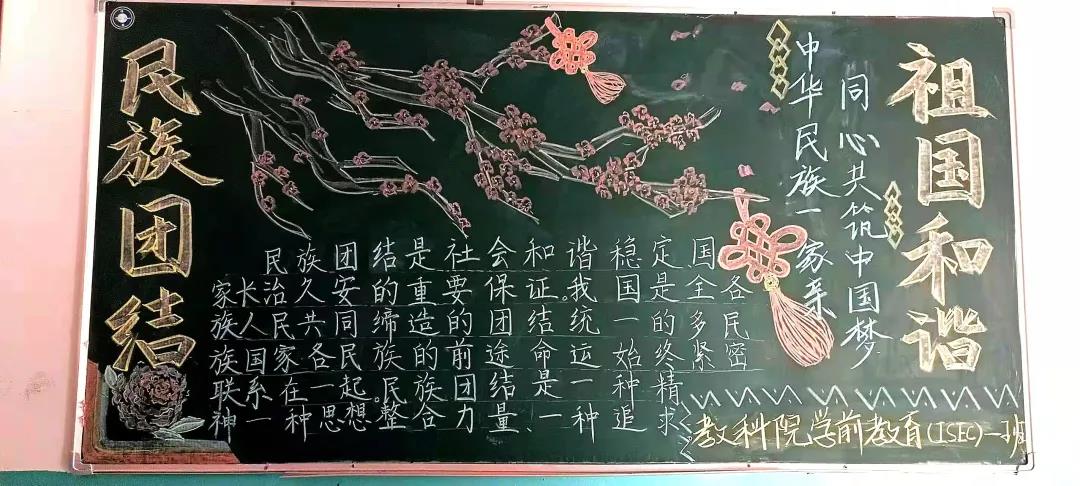 民族团结
祖国和谐
中华民族一家亲
同心共筑中国梦
民族团结是社会和谐稳定国
家长治久安的重要保证。我国是全各
族人民共同缔造的团结统一的多民
族国家各民族的前途命运始终紧密
联系在一起。民族团结是一种精
神一种思想整合力量、一种追求
教科院学前教育(ISEC)一班